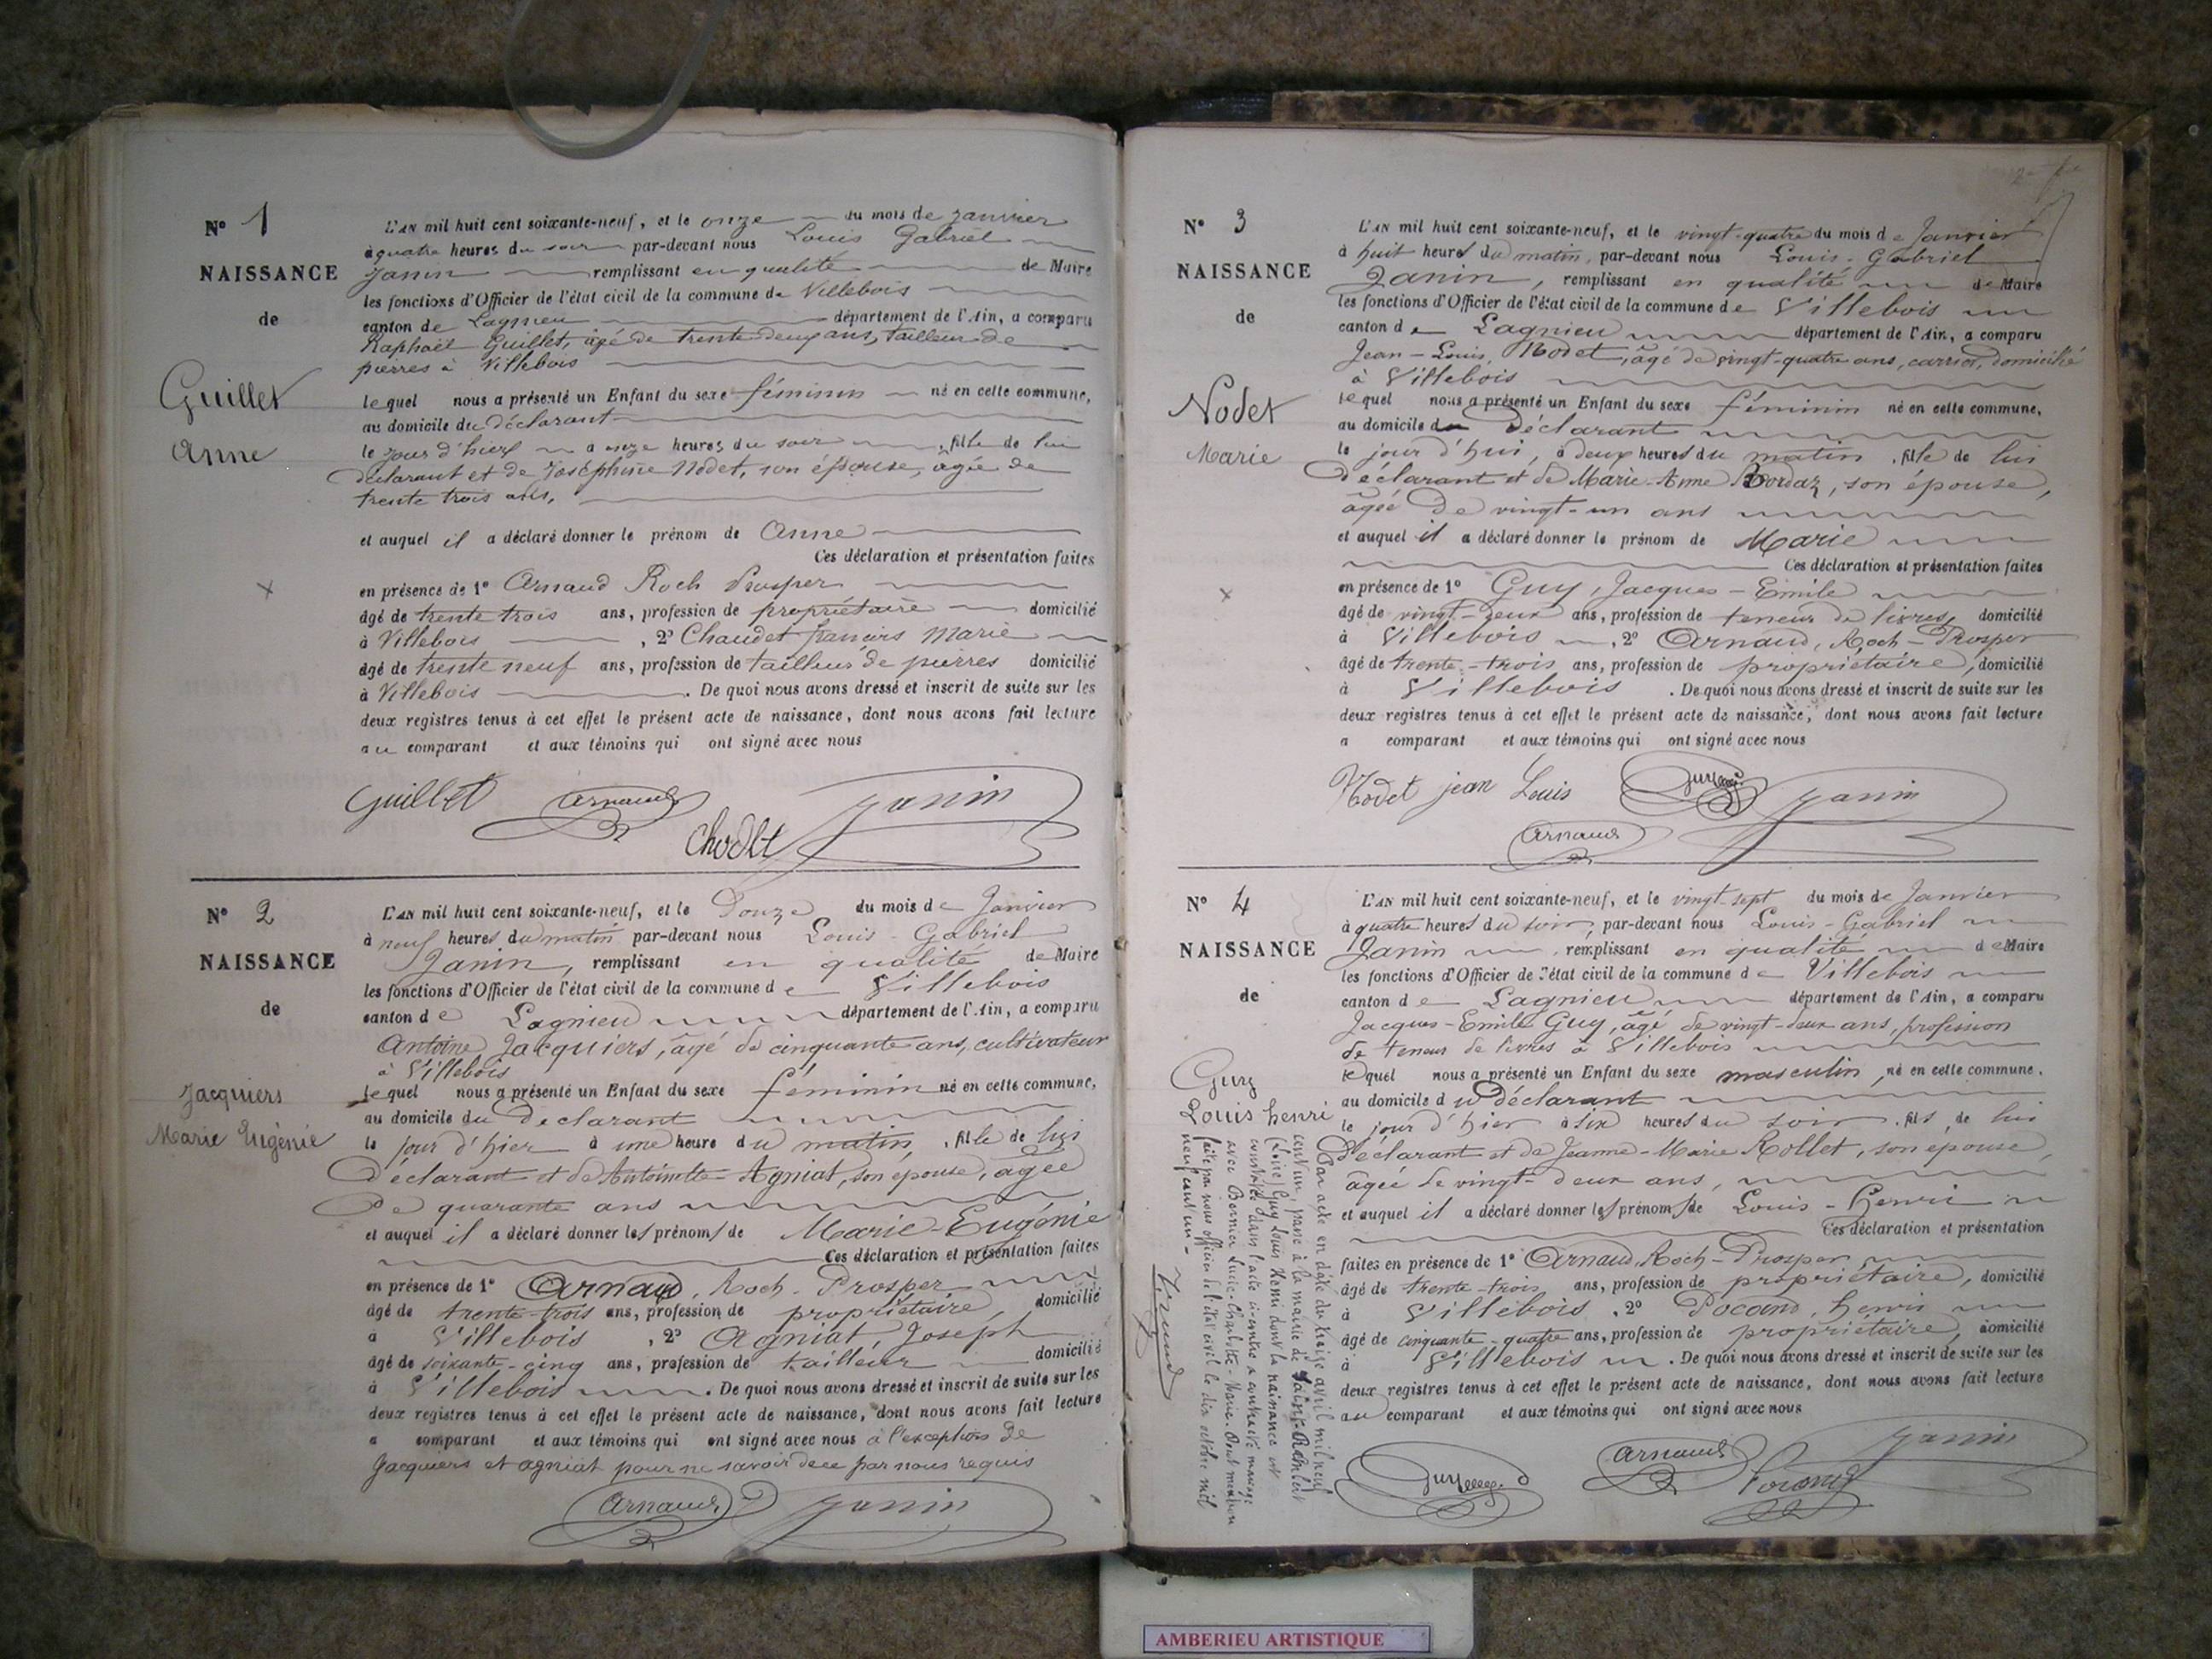 N° 1
NAISSANCE
de
Guillet
Anne
L'AN mil huit cent soixante-neuf, et le onze du mois de janvier
à quatre heures du soir par-devant nous Louis Gabriel
Janin remplissant en qualité de Maire
les fonctions d'Officier de l'état civil de la commune de Villebois
canton de Lagnieu département de l'Ain, a comparu
Raphaël Guillet, âgé de trente deux ans, tailleur de
pierres à Villebois
lequel nous a présenté un Enfant du sexe féminin né en cette commune,
au domicile du déclarant
le jour d'hier à onze heures du soir, fille de lui
déclarant et de Joséphine Nodet, son épouse, âgée de
trente trois ans,
et auquel il a déclaré donner le prénom de Anne
Ces déclaration et présentation faites
en présence de 1° Arnaud Roch Prosper
âgé de trente trois ans, profession de propriétaire domicilié
à Villebois, 2° Chaudet françois Marie
âgé de trente neuf ans, profession de tailleur de pierres domicilié
à Villebois. De quoi nous avons dressé et inscrit de suite sur les
deux registres tenus à cet effet le présent acte de naissance, dont nous avons fait lecture
au comparant et aux témoins qui ont signé avec nous
Guillet Arnaud Janin
Chodet
N° 2
NAISSANCE
de
Jacquiers
Marie Eugénie
L'AN mil huit cent soixante-neuf, et le Douze du mois de Janvier
à neuf heures du matin par-devant nous Louis-Gabriel
Janin, remplissant en qualité de Maire
les fonctions d'Officier de l'état civil de la commune de Villebois
canton de Lagnieu département de l'Ain, a comparu
Antoine Jacquiers, âgé de cinquante ans, cultivateur
à Villebois
lequel nous a présenté un Enfant du sexe féminin né en cette commune,
au domicile du Déclarant
le jour d'hier à une heure du matin, fille de lui
Déclarant et de Antoinette Agniat, son épouse, âgée
de quarante ans
et auquel il a déclaré donner les prénoms de Marie-Eugénie
Ces déclaration et présentation faites
en présence de 1° Arnaud, Roch-Prosper
âgé de trente-trois ans, profession de propriétaire, domicilié
à Villebois, 2° Agniat, Joseph
âgé de soixante-cinq ans, profession de tailleur domicilié
à Villebois. De quoi nous avons dressé et inscrit de suite sur les
deux registres tenus à cet effet le présent acte de naissance, dont nous avons fait lecture
a comparant et aux témoins qui ont signé avec nous à l'exception de
Jacquiers et agniat pour ne savoir de ce par nous requis
Arnaud Janin
N° 3
NAISSANCE
de
Nodet
Marie
L'AN mil huit cent soixante-neuf, et le vingt-quatre du mois de Janvier
à huit heures du matin, par-devant nous Louis-Gabriel
Janin, remplissant en qualité de Maire
les fonctions d'Officier de l'état civil de la commune de Villebois
canton de Lagnieu département de l'Ain, a comparu
Jean-Louis, Nodet, âgé de vingt-quatre ans, carrier, domicilié
à Villebois
lequel nous a présenté un Enfant du sexe féminin né en cette commune,
au domicile du Déclarant
le jour d'hui, à deux heures du matin, fille de lui
Déclarant et de Marie-Anne Bordaz, son épouse,
âgée de vingt-un ans
et auquel il a déclaré donner le prénom de Marie
Ces déclaration et présentation faites
en présence de 1° Guy, Jacques-Emile
âgé de vingt-deux ans, profession de teneur de livres, domicilié
à Villebois, 2° Arnaud, Roch-Prosper
âgé de trente-trois ans, profession de propriétaire, domicilié
à Villebois. De quoi nous avons dressé et inscrit de suite sur les
deux registres tenus à cet effet le présent acte de naissance, dont nous avons fait lecture
a comparant et aux témoins qui ont signé avec nous
Nodet jean Louis Guy Janin
Arnaud
N° 4
NAISSANCE
de
Guy
Louis henri
L'AN mil huit cent soixante-neuf, et le vingt-sept du mois de Janvier
à quatre heures du soir, par-devant nous Louis-Gabriel
Janin, remplissant en qualité de Maire
les fonctions d'Officier de l'état civil de la commune de Villebois
canton de Lagnieu département de l'Ain, a comparu
Jacques-Emile Guy, âgé de vingt-deux ans, profession
de teneur de livres à Villebois
lequel nous a présenté un Enfant du sexe masculin, né en cette commune.
au domicile du Déclarant
le jour d'hier à six heures du soir, fils, de lui
Déclarant et de Jeanne-Marie Rollet, son épouse,
âgée de vingt-deux ans,
et auquel il a déclaré donner les prénoms de Louis-Henri
Ces déclaration et présentation
faites en présence de 1° Arnaud, Roch-Prosper
âgé de trente-trois ans, profession de propriétaire, domicilié
à Villebois, 2° Pocand, henri
âgé de cinquante-quatre ans, profession de propriétaire, domicilié
à Villebois. De quoi nous avons dressé et inscrit de suite sur les
deux registres tenus à cet effet le présent acte de naissance, dont nous avons fait lecture
au comparant et aux témoins qui ont signé avec nous
Guy Arnaud Janin
Pocand
Par acte en date du treize avril mil neuf
cent un, passé à la mairie de Saint-Rambert
(Loire) Guy Louis Henri dont la naissance est
constatée dans l'acte ci-contre a contracté mariage
avec Lucie-Charlotte-Marie. Dont mention
faite par nous officier de l'état civil le dix octobre mil
neuf cent un.
AMBERIEU ARTISTIQUE